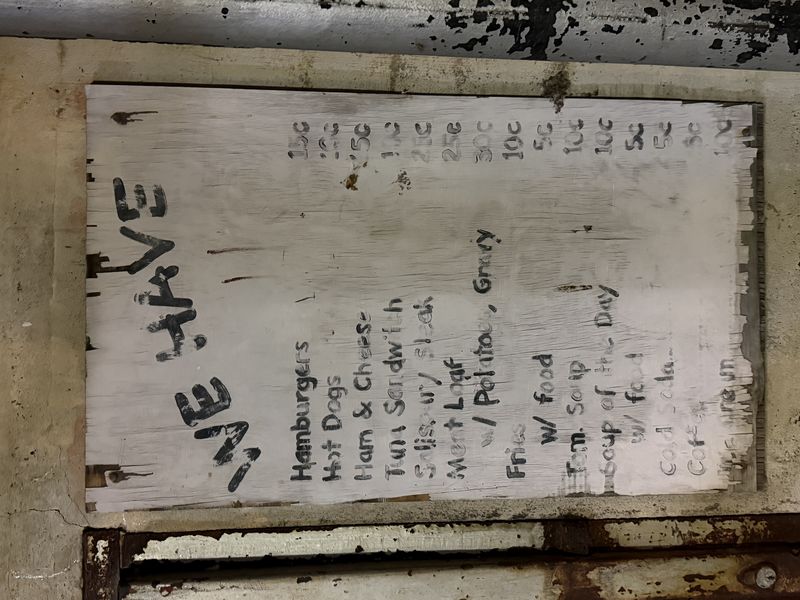 WE HAVE
Hamburgers 15c
Hot Dogs
Ham & Cheese 15c
Tuna Sandwich
Salisbury Steak 25c
Meat Loaf 25c
w/ Potatoes, Gravy 30c
Fries 10c
w/ food 5c
Tom. Soup 10c
Soup of the Day 10c
w/ food 5c
Cold 5c
Coffee 5c
10c